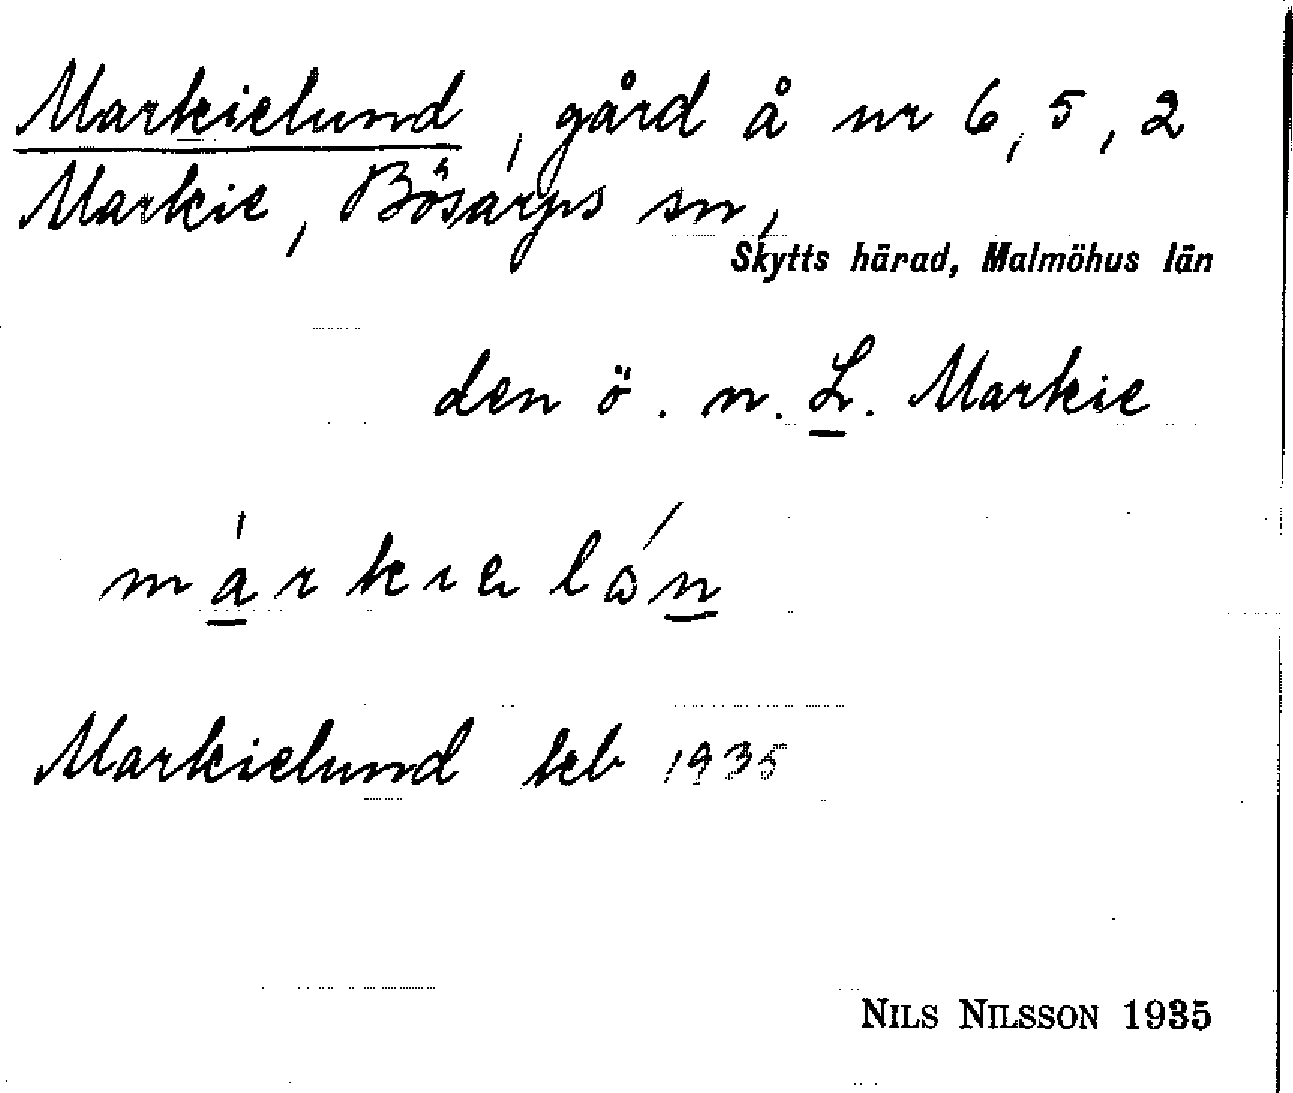 Markielund, gård å nr 6, 5, 2
Markie, Bösarps sn,
Skytts härad, Malmöhus län
den ö. n. L. Markie
Markielund keb 1935
NILS NILSSON 1935